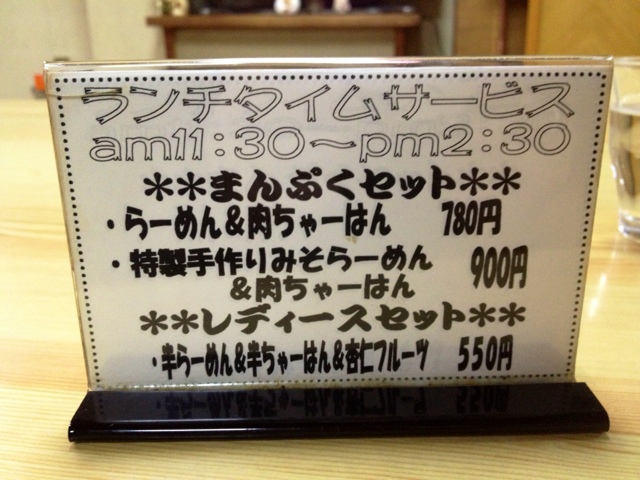 ランチタイムサービス
am11:30～pm2:30
＊＊まんぷくセット＊＊
・らーめん＆肉ちゃーはん 780円
・特製手作りみそらーめん 900円
＆肉ちゃーはん
＊＊レディースセット＊＊
・半らーめん＆半ちゃーはん＆杏仁フルーツ 550円